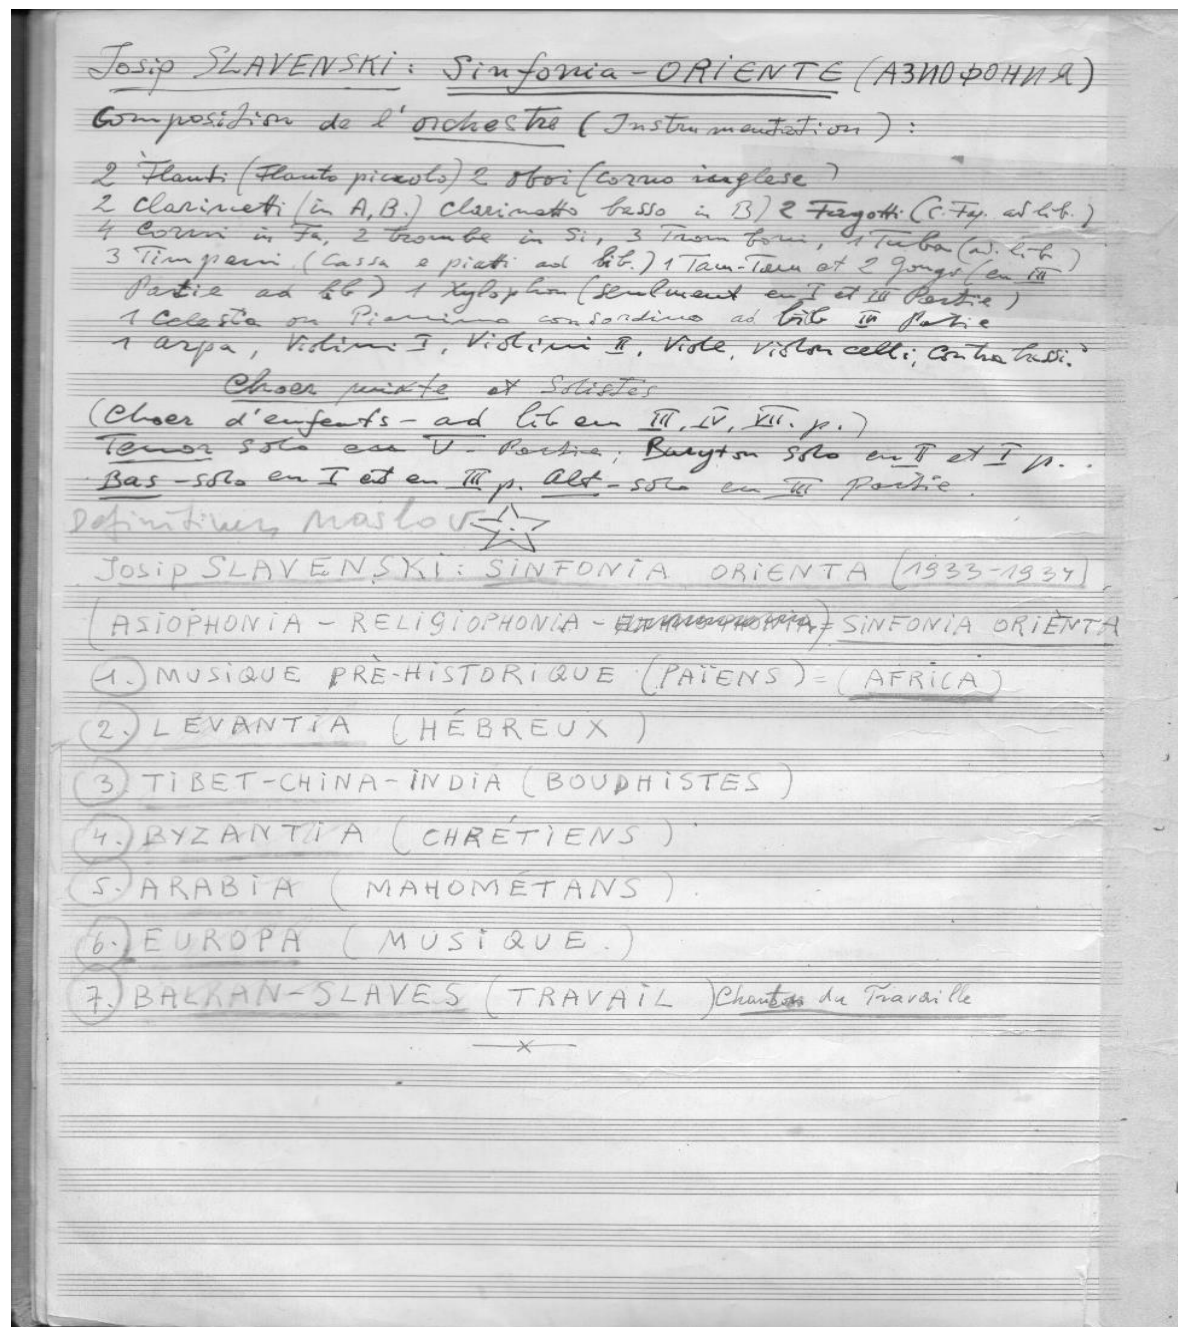 Josip SLAVENSKI: Sinfonia-ORiENTE (АЗИОФОНИЯ)
Composition de l'orchestre (Instrumentation):
2 Flauti (Flauto piccolo) 2 oboi (corno inglese)
2 clarinetti (in A, B.) clarinetto basso in B) 2 Fagotti (C. Fag. ad lib.)
4 corni in Fa, 2 trombe in Si, 3 Tromboni, 1 Tuba (ad. lib)
3 Timpani (cassa e piatti ad lib.) 1 Tam-Tam et 2 Gongs (en III
Partie ad lib) 1 Xylophon (seulment en I et III Partie)
1 Celesta ou Pianino consordino ad lib III Patie
1 arpa, Violini I, Violini II, Viole, Violoncelli, Contrabassi.
Choer mixte et Solistes
(Choer d'enfents - ad lib en III, IV, VII. p.)
Tenor solo en V - Partie; Baryton solo en II et I p..
Bas-solo en I et en III p. Alt-solo en III Partie.
Definitivan naslov
Josip SLAVENSKi: SiNFONiA ORiENTA (1933-1934)
(ASiOPHONiA - RELiGiOPHONiA - = SiNFONiA ORiÈNTA
1. MUSiQUE PRÈ-HiSTORiQUE (PAÏENS) = (AFRiCA)
2. LEVANTiA (HÉBREUX)
3 TiBET-CHiNA-iNDiA (BOUDHiSTES)
4. BYZANTiA (CHRÉTiENS)
5. ARABiA (MAHOMÉTANS).
6. EUROPA (MUSiQUE.)
7. BALKAN-SLAVES (TRAVAiL) Chanton du Travaille